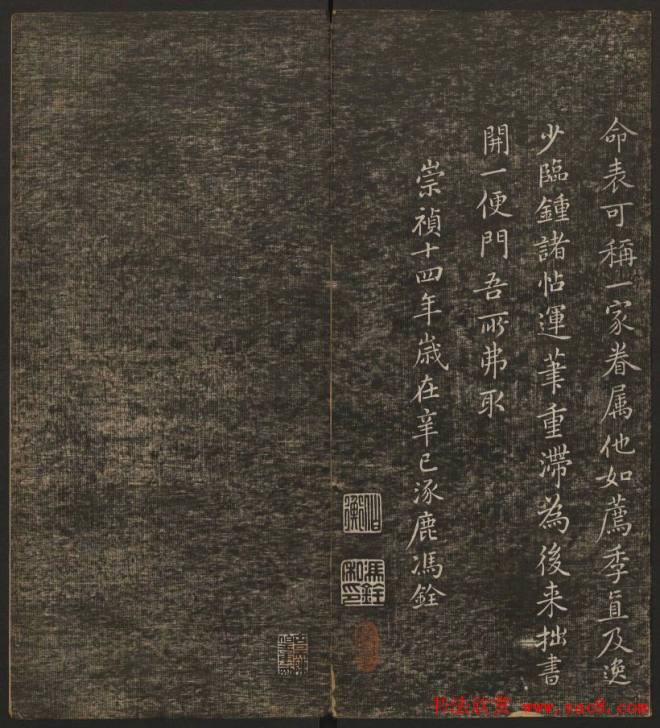 命表可稱一家眷属他如薦季直及逸
少臨鍾諸帖運筆重滯為後来拙書
開一便門吾所弗取
崇禎十四年歲在辛巳涿鹿馮銓
馮銓私印
书法欣赏 www.yac8.com